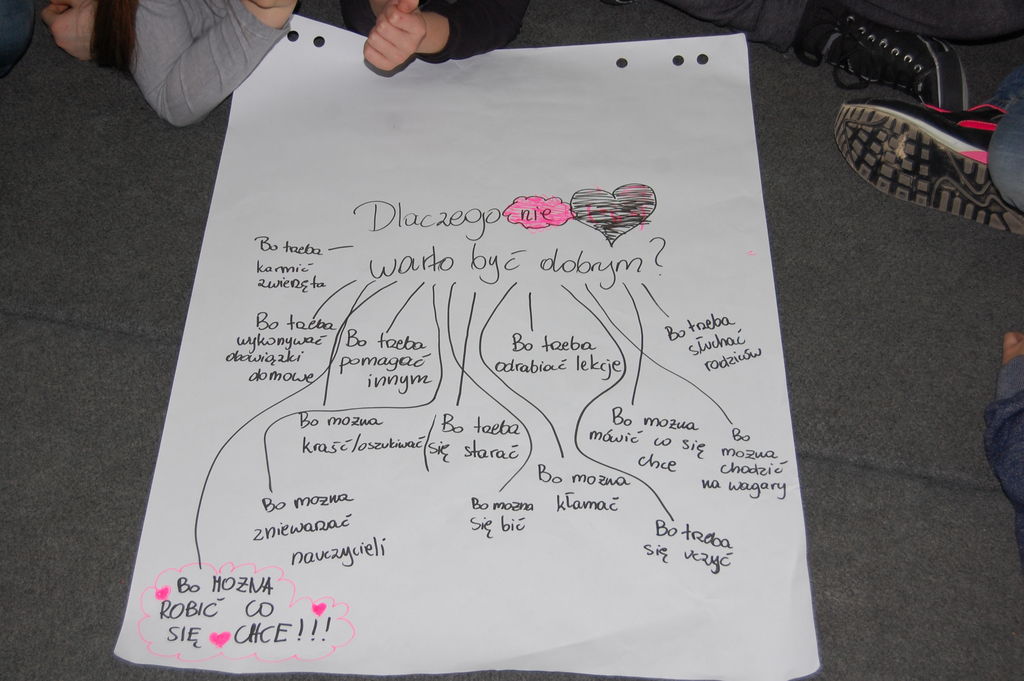 Dlaczego nie
warto być dobrym?
Bo trzeba
karmić
zwierzęta
Bo trzeba
wykonywać
obowiązki
domowe
Bo trzeba
pomagać
innym
Bo trzeba
odrabiać lekcje
Bo trzeba
słuchać
rodziców
Bo można
kraść/oszukiwać
Bo trzeba
się starać
Bo można
mówić co się
chce
Bo
można
chodzić
na wagary
Bo można
znieważać
nauczycieli
Bo można
się bić
Bo można
kłamać
Bo trzeba
się uczyć
Bo MOŻNA
ROBIĆ CO
SIĘ CHCE!!!